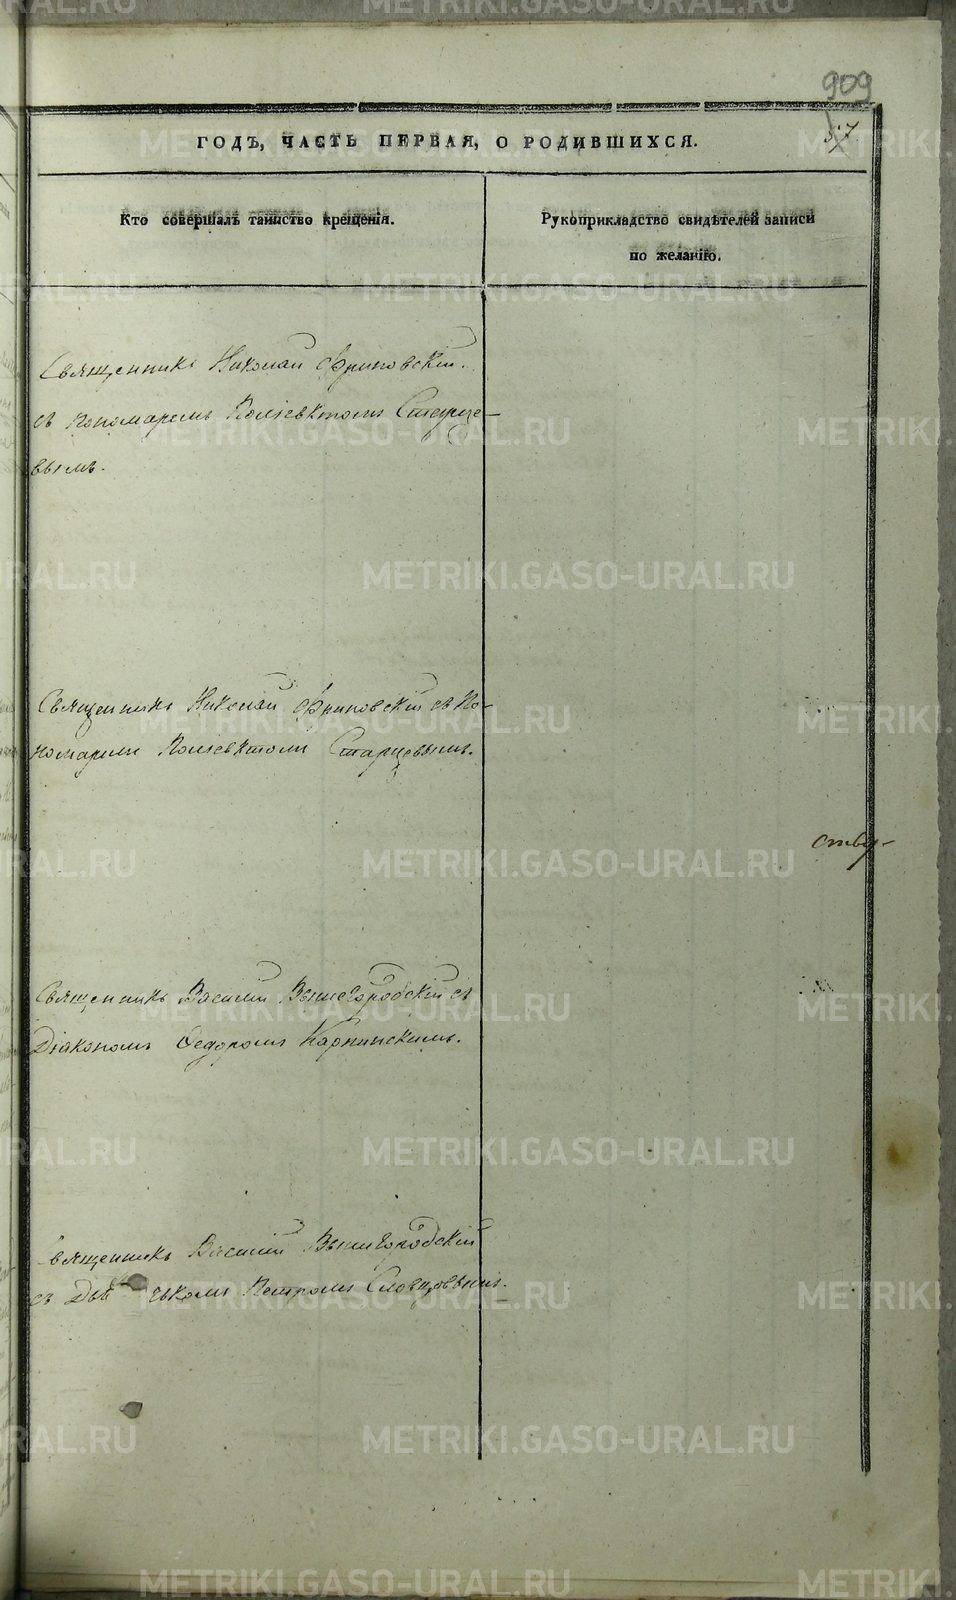 909
57
ГОДЪ, ЧАСТЬ ПЕРВАЯ, О РОДИВШИХСЯ.
Кто совершалъ таинство крещенія.
Рукоприкладство свидѣтелей записи
по желанію.
Священникъ Николай Фриновскій
съ пономаремъ Поліевктомъ Старце-
вымъ.
Священникъ Николай Фриновскій съ по-
номаремъ Поліевктомъ Старцевымъ.
Священникъ Василій Вышегородскій съ
Діакономъ Федоромъ Карпинскимъ.
Священникъ Василій Вышегородскій
съ Дьячкомъ Петромъ Словцовымъ.
METRIKI.GASO-URAL.RU